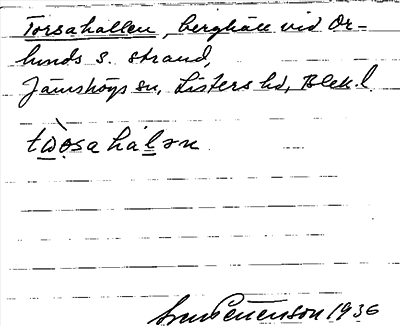 Torsahallen, berghäll vid Or-
lunds s. strand,
Jämshögs sn, Listers hd, Blek. l.
tɷ̀o̤sahál̠ən
1936